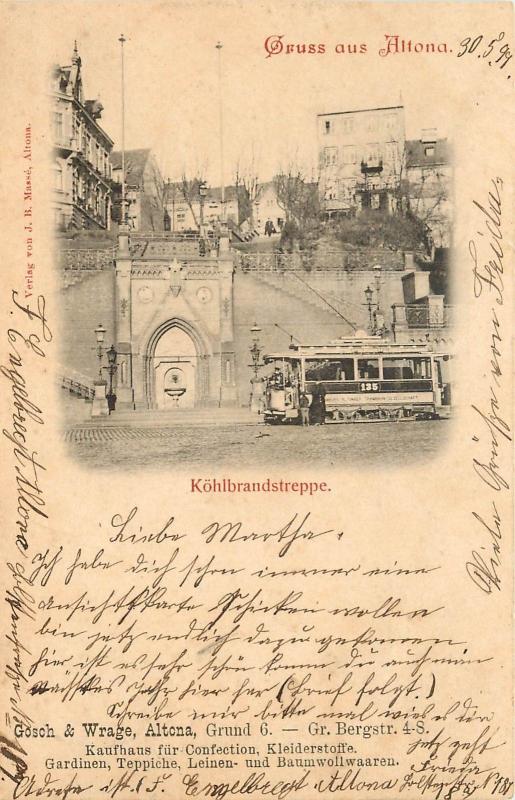 Gruss aus Altona.
30.5.99
Verlag von J. B. Massé, Altona.
135
Köhlbrandstreppe.
Liebe Martha.
Ich habe dich schon immer eine
Ansichtskarte Schicken wollen
bin jetz endlich dazu gekommen
hier ist es sehr schön komm du auch man
nächstes Jahr hier her (Brief folgt.)
Schreibe mir bitte mal wies es dir
jetz geht
Frieda
Gösch & Wrage, Altona, Grund 6. — Gr. Bergstr. 4-8.
Kaufhaus für Confection, Kleiderstoffe.
Gardinen, Teppiche, Leinen- und Baumwollwaaren.
Adresse ist. F. Engelbregt Altona
Viele Grüße von Frieda.
F. Engelbregt Altona